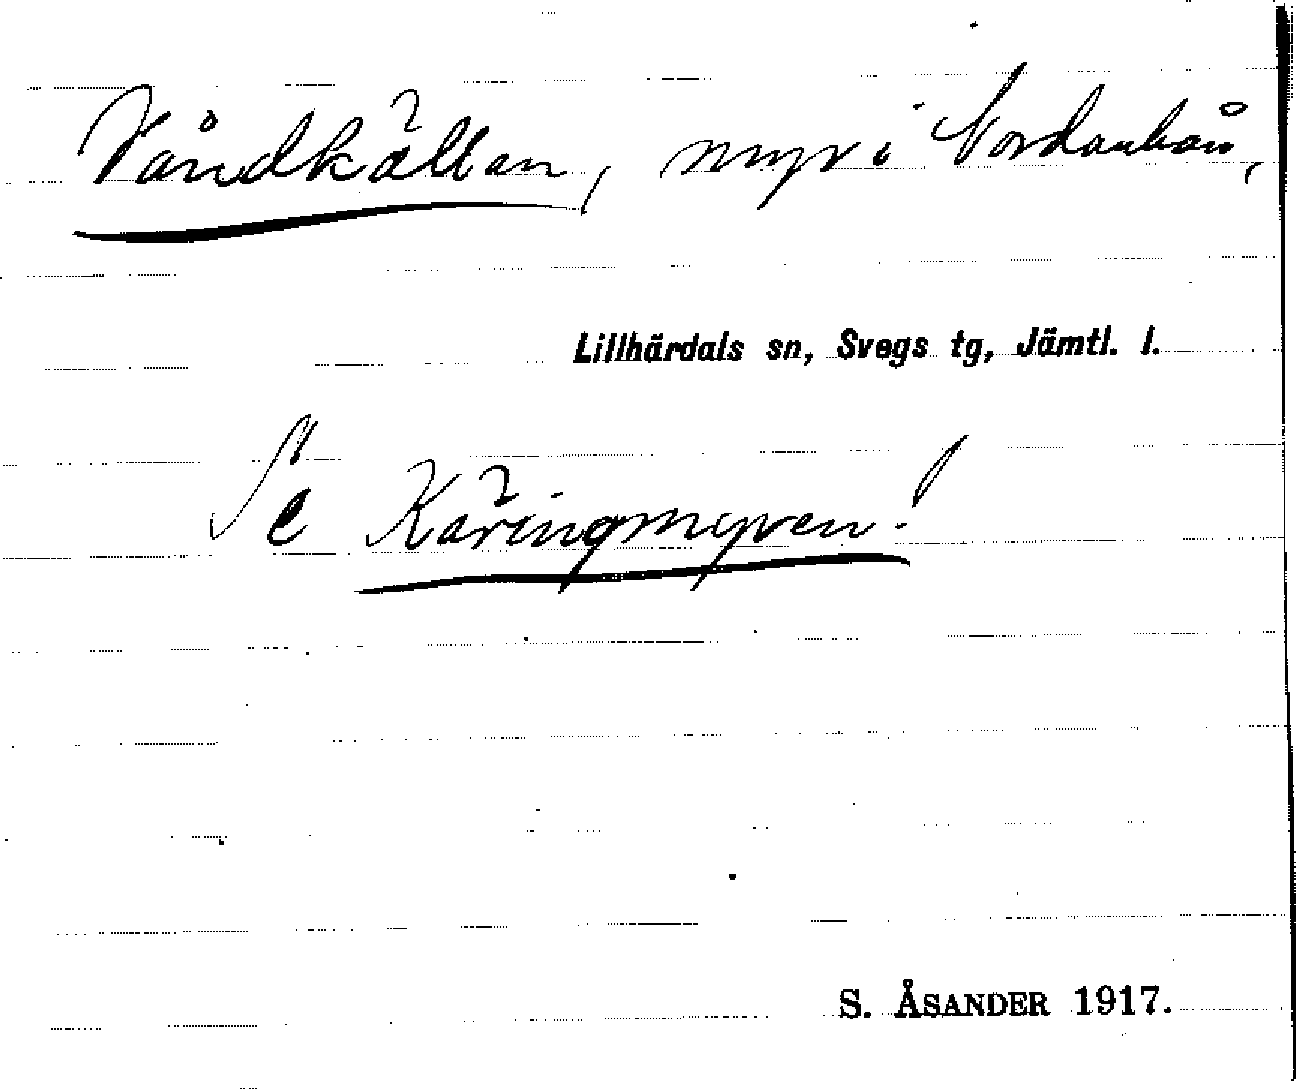 Våndkällan, myr i Nordanhån,
Lillhärdals sn, Svegs tg, Jämtl. l.
Se Käringmyren!
S. ÅSANDER 1917.